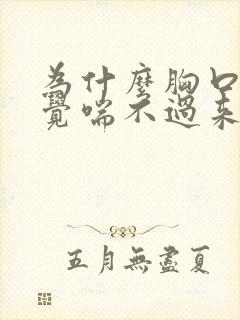 為什麼胸口
覺喘不過來
五月無盡夏